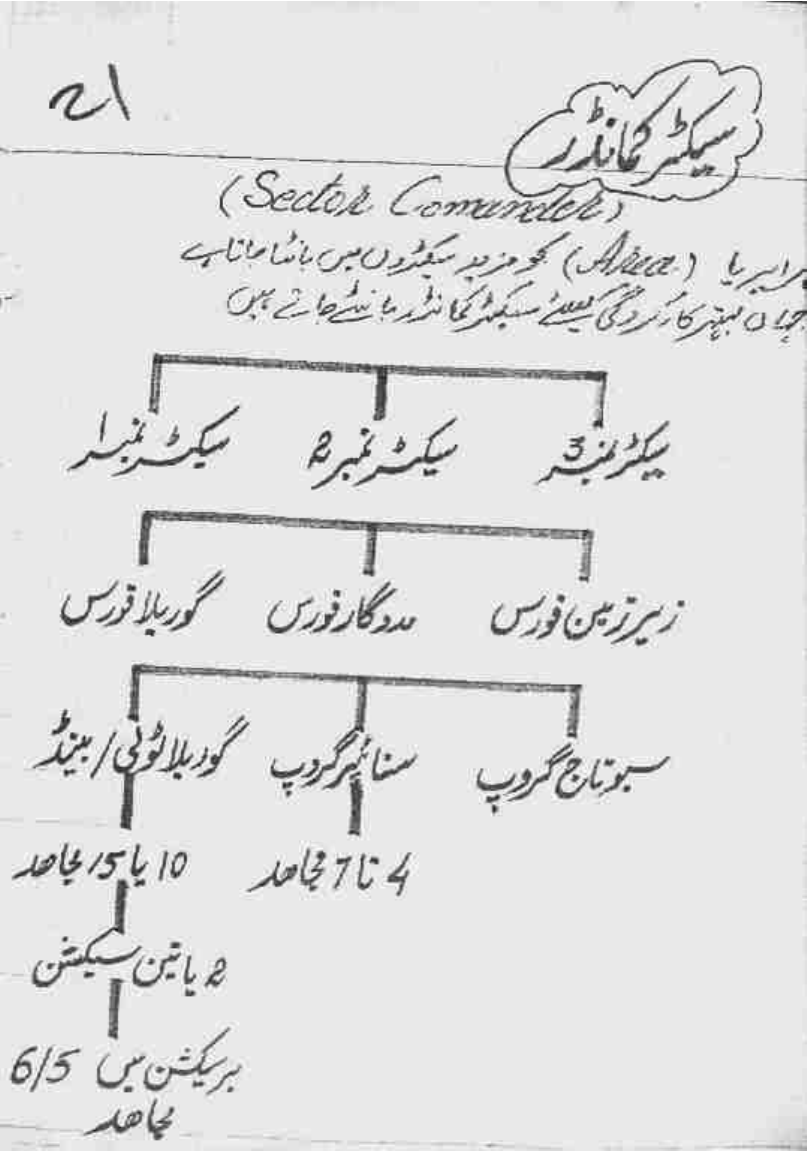 21
سیکٹر کمانڈر
(Sector Comander)
ہر ایریا (Area) کو مزید سیکٹروں میں بانٹا جاتا ہے
جہاں بہتر کارکردگی کیلئے سیکٹر کمانڈر بانٹے جاتے ہیں
سیکٹر نمبر 3 سیکٹر نمبر 2 سیکٹر نمبر 1
زیر زمین فورس مددگار فورس گوریلا فورس
سبوتاج گروپ سنائپر گروپ گوریلا ٹولی / بینڈ
4 تا 7 مجاھد 10 یا 15 مجاھد
2 یا تین سیکشن
ہر سیکشن میں 6/5
مجاھد